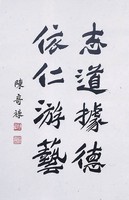 志道據德
依仁游藝
陳奇祿